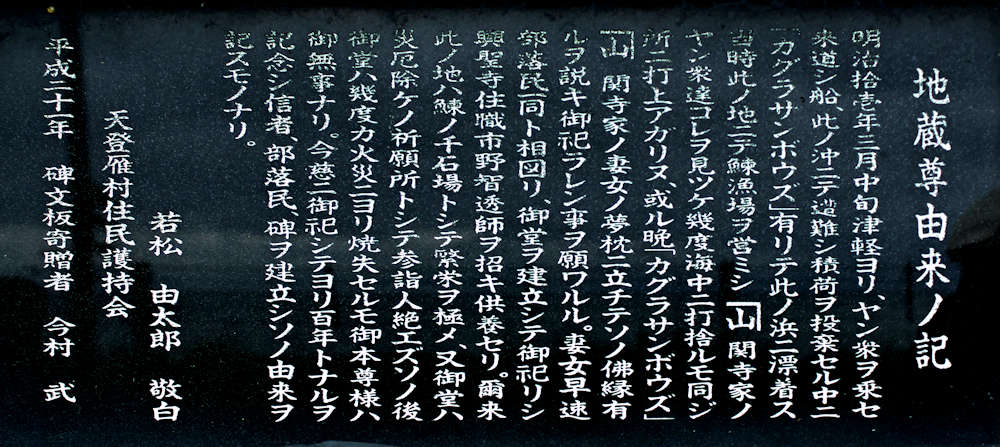 地蔵尊由来ノ記
明治拾壱年三月中旬津軽ヨリ、ヤン衆ヲ乗セ
来道シ船、此ノ沖ニテ遭難シ積荷ヲ投棄セル中ニ
「カグラサンボウズ」有リテ此ノ浜ニ漂着ス
当時此ノ地ニテ鰊漁場ヲ営ミシ 山 関寺家ノ
ヤン衆達コレヲ見ツケ幾度海中ニ打捨ルモ同ジ
所ニ打上アガリヌ、或ル晩「カグラサンボウズ」
山 関寺家ノ妻女ノ夢枕ニ立チテソノ佛縁有
ルヲ説キ御祀ラレン事ヲ願ワルル。妻女早速
部落民一同ト相図リ、御堂ヲ建立シテ御祀リシ
興聖寺住職市野智透師ヲ招キ供養セリ。爾来
此ノ地ハ鰊ノ千石場トシテ繁栄ヲ極メ、又御堂ハ
災厄除ケノ祈願所トシテ参詣人絶エズソノ後
御堂ハ幾度カ火災ニヨリ焼失セルモ御本尊様ハ
御無事ナリ。今慈ニ御祀シテヨリ百年トナルヲ
記念シ信者、部落民、碑ヲ建立シソノ由来ヲ
記スモノナリ。
若松 由太郎 敬白
天登雁村住民護持会
平成二十一年 碑文板寄贈者 今村 武